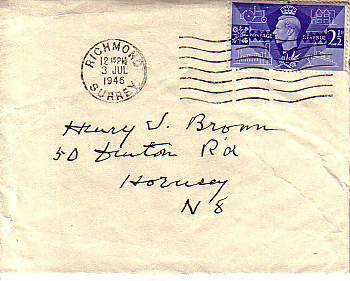 RICHMOND
12 15 PM
3 JUL
1946
SURREY
POSTAGE REVENUE
2½D
Henry J. Brown
50 Denton Rd
Hornsey
N 8